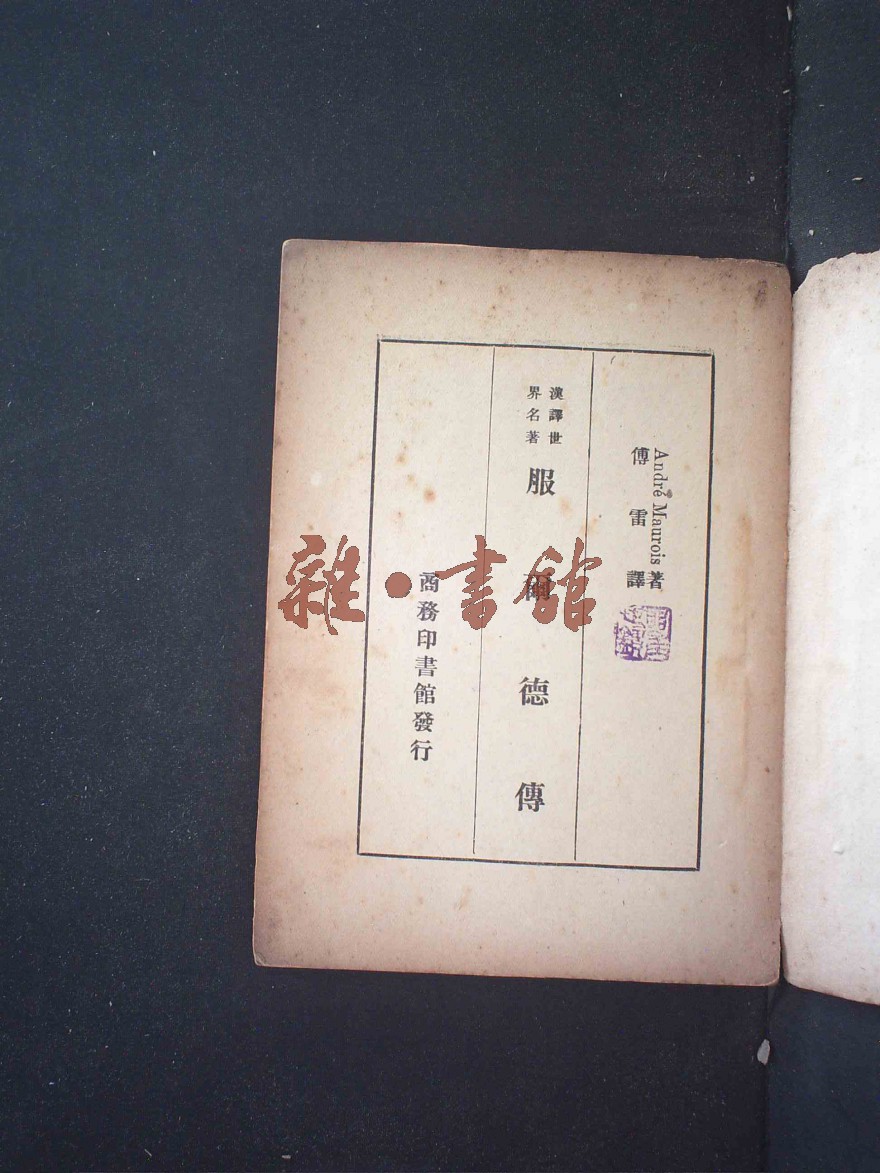 André Maurois著
傅雷譯
漢譯世
界名著
服爾德傳
商務印書館發行
雜·書館